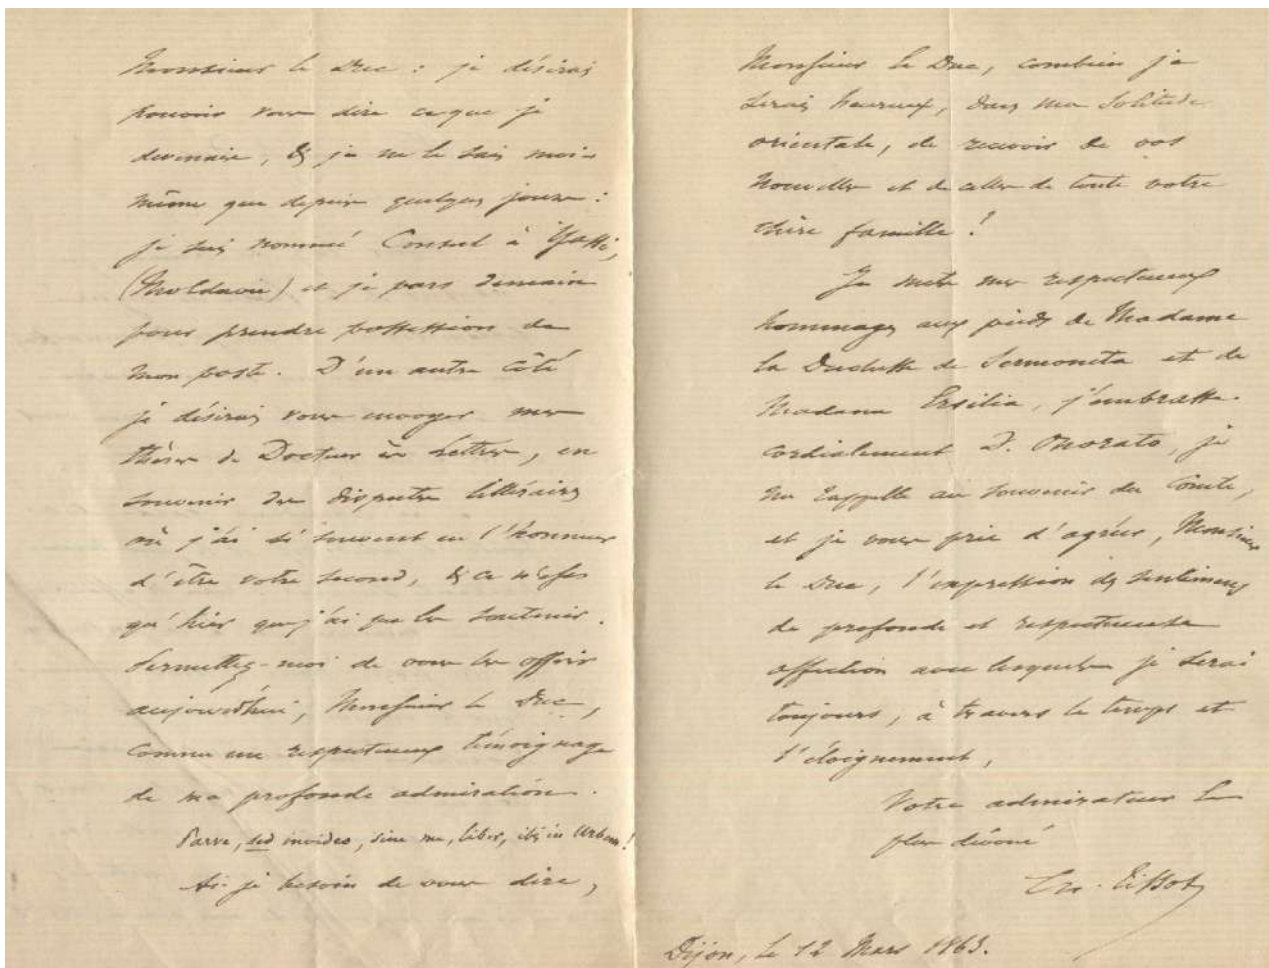 Monsieur le Duc : je désirais
pouvoir vous dire ce que je
devenais, et je ne le sais moi-
même que depuis quelques jours :
je suis nommé Consul à Yassi,
(Moldavie) et je pars demain
pour prendre possession de
mon poste. D'un autre côté
je désirais vous envoyer mes
thèses de Docteur ès Lettres, en
souvenir des disputes littéraires
où j'ai si souvent eu l'honneur
d'être votre second, et ce n'est
qu'hier que j'ai pu les soutenir.
Permettez-moi de vous les offrir
aujourd'hui, Monsieur le Duc,
comme un respectueux témoignage
de ma profonde admiration.
Parve, sed invideo, sine me, liber, ibis in Urbem!
Ai-je besoin de vous dire,
Monsieur le Duc, combien je
serais heureux, dans ma solitude
orientale, de recevoir de vos
nouvelles et de celles de toute votre
chère famille!
Je mets mes respectueux
hommages aux pieds de Madame
la Duchesse de Sermoneta et de
Madame Ersilia, j'embrasse
cordialement D. Onorato, je
me rappelle au souvenir du Comte,
et je vous prie d'agréer, Monsieur
le Duc, l'expression des sentimens
de profonde et respectueuse
affection avec lesquels je serai
toujours, à travers le temps et
l'éloignement,
Votre admirateur le
plus dévoué
Ch. Tissot
Dijon, le 12 Mars 1863.